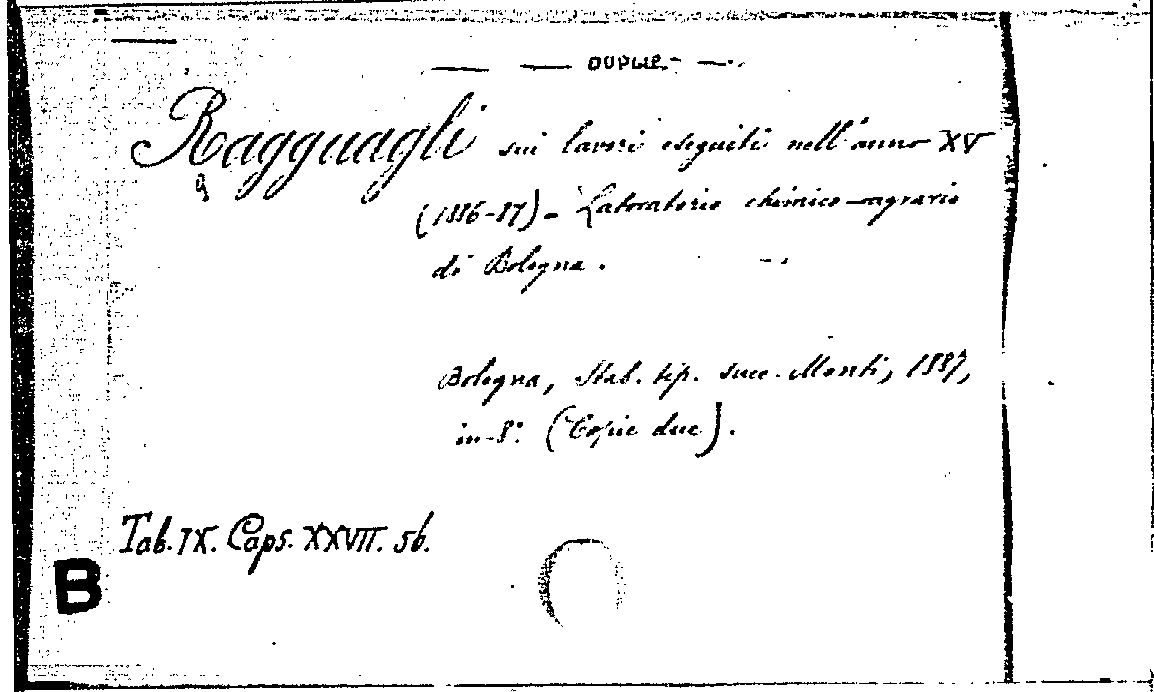 DUPLIC.
Ragguagli sui lavori eseguiti nell'anno XV
(1886-87) - Laboratorio chimico-agrario
di Bologna.
Bologna, Stab. tip. succ. Monti, 1887,
in-8°. (Copie due).
Tab. IX. Caps. XXVII. 56.
B